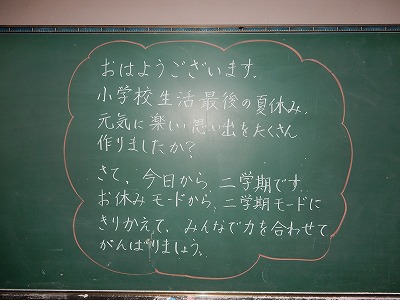 おはようございます。
小学校生活最後の夏休み、
元気に楽しい思い出をたくさん
作りましたか?
さて、今日から、二学期です。
お休みモードから、二学期モードに
きりかえて、みんなで力を合わせて
がんばりましょう。